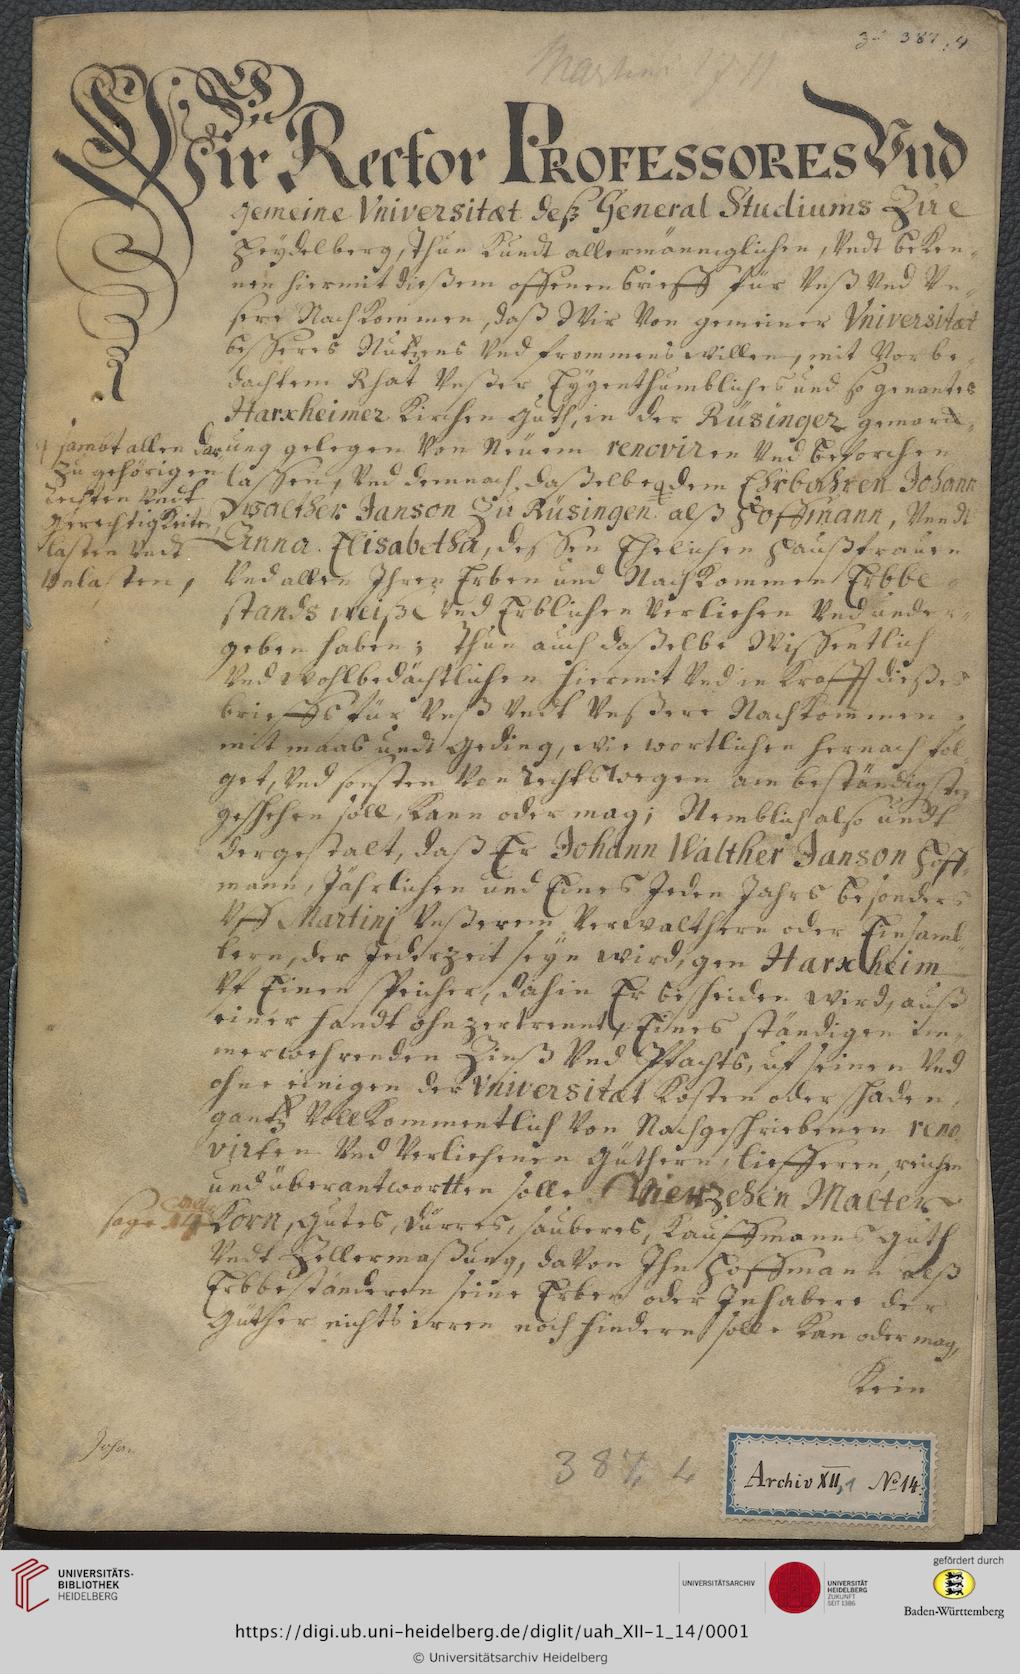 387, 4
Wir Rector PROFESSORES Vnd
gemeine Vniversitæt deß General Studiums Zue
Heydelberg, Thun Kundt allermänniglichen, Vndt beken-
nen hiermit dießem offenen brieff für Vnß Vnd Vn-
sere Nachkommen, daß Wir Von gemeiner Vniversitæt
besseres Nutzens Vnd frommens willen, mit Vorbe-
dachtem Rhat Vnßer Eygenthumbliches und so genantes
Harxheimer Kirchen Guth, in der Rüsinger gemarck-
ung gelegen Von Neuem renoviren Vnd beforchen
lassen, Vnd demnach daßelbe dem Ehrbahren Johann
Walther Janson Zu Rüsingen alß Hoffmann, Vnndt
Anna Elisabetha, dessen Ehelichen Haußfrauen
Vnd allen Ihren Erben und Nachkommen Erbbe-
stands weiße Vnd Erblichen Verliehen Vnd under-
geben haben; Thun auch daßelbe Wissentlich
Vnd Wohlbedächtlichen hiermit Vnd in Krafft dießes
brieffs für Vnß Vndt Vnßere Nachkommen,
mit maas undt geding, wie wortlichen hernach fol-
get, Vnd sonsten Von Rechts Wegen am beständigsten
geschehen soll, kann oder mag; Nemblich also undt
dergestalt, daß Er Johann Walther Janson Hoff-
mann, Jährlichen und Eines Jeden Jahrs besonders
Vff Martinj Vnßerem Verwalthern oder Einsamb-
lern, der Jederzeit seyn wird, gen Harxheim
Vf Einen Speicher, dahin Er bescheiden wird, auß
einer handt ohnzertrennt, Eines ständigen im-
merwehrenden Zinß Vnd Pfachts, uf seinen Vnd
ohne einigen der Vniversitæt Kosten oder schaden,
gantz Vollkommentlich Von Nachgeschriebenen reno-
virten Vnd Verliehenen Güthern, liefferen, reichen
und überantwortten solle Vierzehen Malter
Korn, gutes, dürres, sauberes, Kauffmanns Guth
Vndt Zellermaßung, davon Ihn Hoffmann alß
Erbbeständeren seine Erben oder Inhabere der
Güther nichts irren noch hindern solle kan oder mag,
Kein
sambt allen dar
Zu gehörigen
Rechten Vndt
Gerechtigkeiten
lasten Vndt
Vnlasten,
sage 14
Johan
387, 4
Archiv XII,1 No 14.
UNIVERSITÄTS-
BIBLIOTHEK
HEIDELBERG
UNIVERSITÄTSARCHIV
UNIVERSITÄT
HEIDELBERG
ZUKUNFT
SEIT 1386
gefördert durch
Baden-Württemberg
https://digi.ub.uni-heidelberg.de/diglit/uah_XII-1_14/0001
© Universitätsarchiv Heidelberg